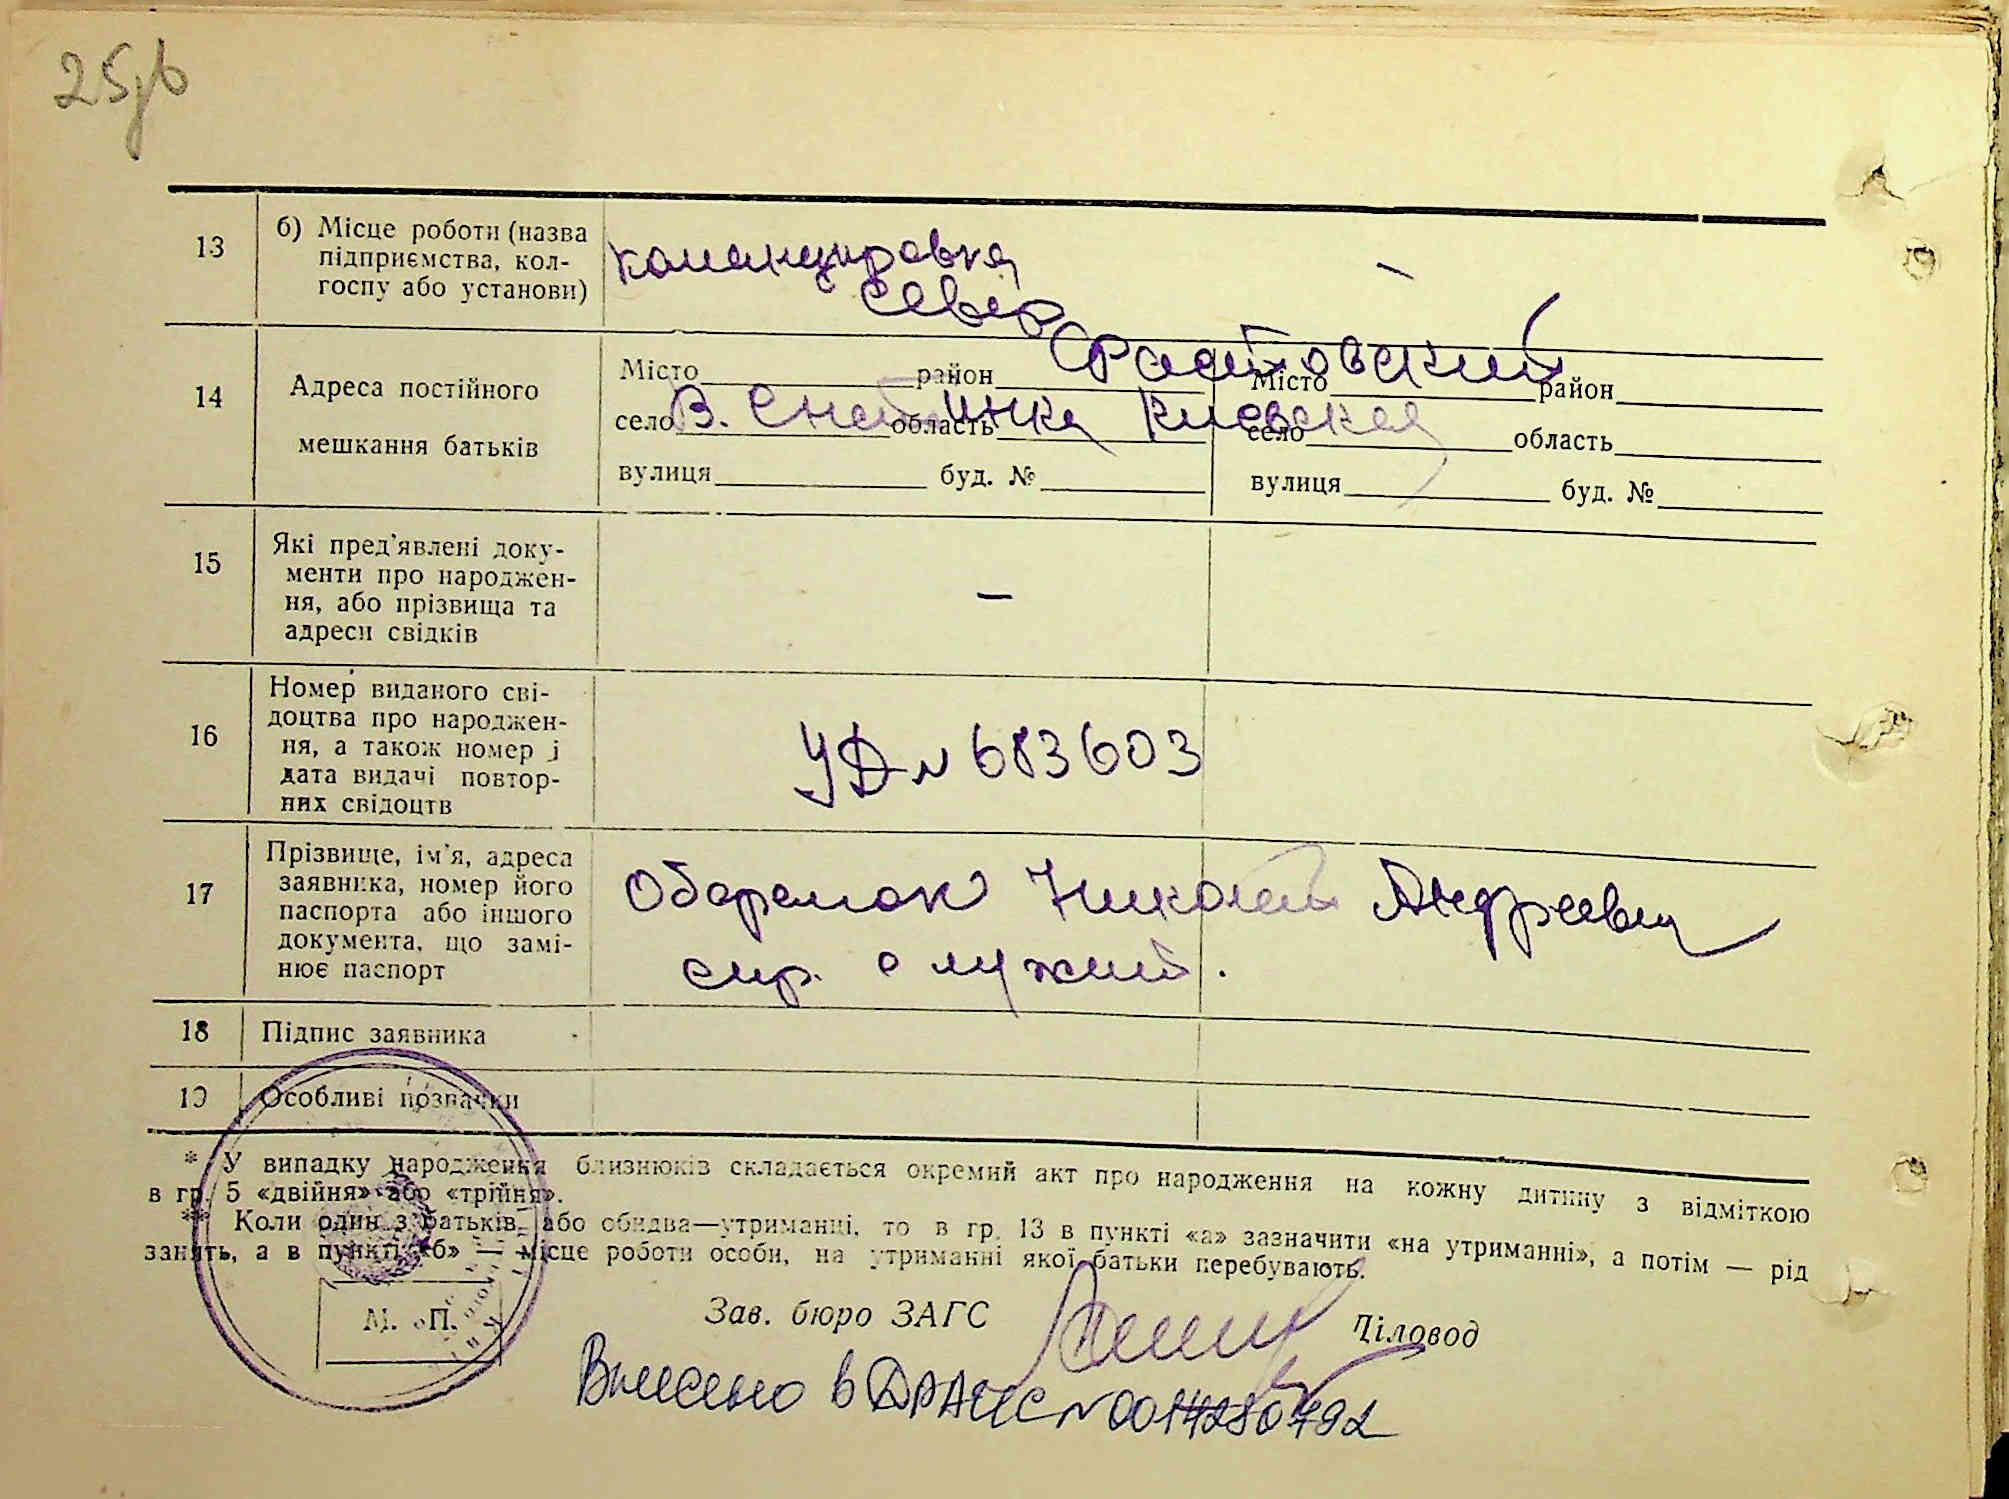 13
б) Місце роботи (назва
підприємства, кол-
госпу або установи)
командировка
север
—
14
Адреса постійного
мешкання батьків
Фастовский
Місто район Місто район
В. Снетинка Киевская
село область село область
вулиця буд. № вулиця буд. №
15
Які пред'явлені доку-
менти про народжен-
ня, або прізвища та
адреси свідків
—
16
Номер виданого сві-
доцтва про народжен-
ня, а також номер і
дата видачі повтор-
них свідоцтв
УД № 683603
17
Прізвище, ім'я, адреса
заявника, номер його
паспорта або іншого
документа, що замі-
нює паспорт
Николай Андреевич
18 Підпис заявника
19 Особливі позначки
* У випадку народження близнюків складається окремий акт про народження на кожну дитину з відміткою
в гр. 5 «двійня» або «трійня».
** Коли один з батьків, або обидва—утриманці, то в гр. 13 в пункті «а» зазначити «на утриманні», а потім — рід
занять, а в пункті «б» — місце роботи особи, на утриманні якої батьки перебувають.
М. П.
Зав. бюро ЗАГС Діловод
Внесено в ДРАЦС №